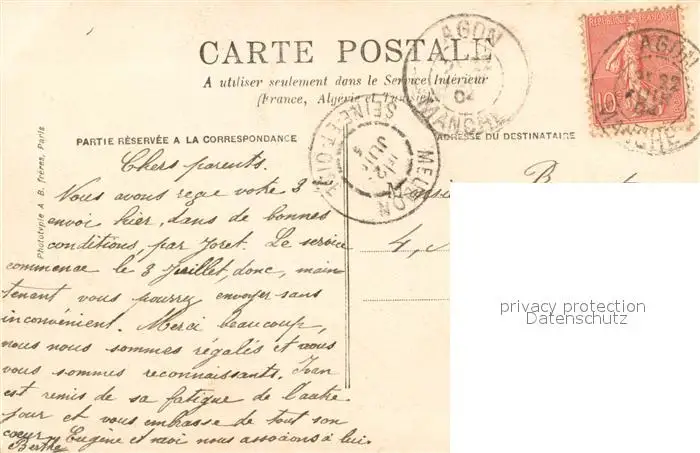 CARTE POSTALE
A utiliser seulement dans le Service Intérieur
(France, Algérie et Tunisie)
PARTIE RÉSERVÉE A LA CORRESPONDANCE
ADRESSE DU DESTINATAIRE
RÉPUBLIQUE FRANÇAISE
10
AGON
04
MANCHE
AGON
22
MANCHE
MELUN
SEINE-ET-OISE
JUIL
Phototypie A. B. frères, Paris
Chers parents.
Nous avons reçu votre 3
envoi hier, dans de bonnes
conditions, par Joret. Le service
commence le 3 Juillet, donc, main
tenant vous pourrez envoyer sans
inconvénient. Merci beaucoup,
nous nous sommes régalés et vous
vous sommes reconnaissants.
est remis de sa fatigue de l'autre
jour et vous embrasse de tout son
coeur. Eugène et moi nous associons à lui.
Berthe
4,
privacy protection
Datenschutz